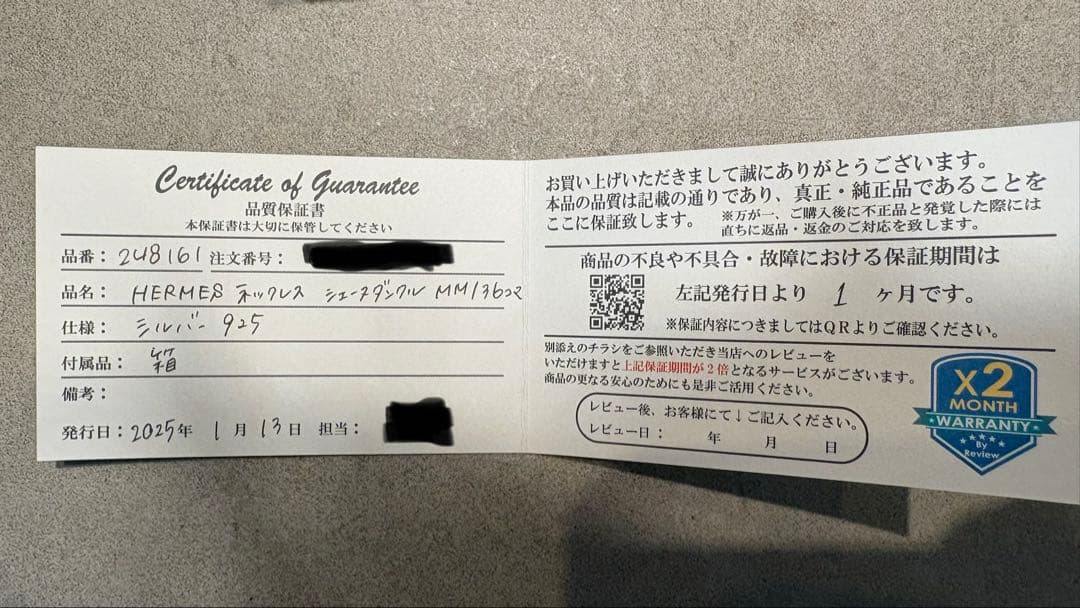 Certificate of Guarantee
品質保証書
本保証書は大切に保管してください
品番：248161 注文番号：
品名：HERMES ネックレス シェーヌダンクル MM/36コマ
仕様：シルバー925
付属品：箱
備考：
発行日：2025年 1月 13日 担当：
お買い上げいただきまして誠にありがとうございます。
本品の品質は記載の通りであり、真正・純正品であることを
ここに保証致します。 ※万が一、ご購入後に不正品と発覚した際には
直ちに返品・返金のご対応を致します。
商品の不良や不具合・故障における保証期間は
左記発行日より 1 ヶ月です。
※保証内容につきましてはQRよりご確認ください。
別添えのチラシをご参照いただき当店へのレビューを
いただけますと上記保証期間が2倍となるサービスがございます。
商品の更なる安心のためにも是非ご活用ください。
レビュー後、お客様にて↓ご記入ください。
レビュー日： 年 月 日
X2
MONTH
WARRANTY
By
Review